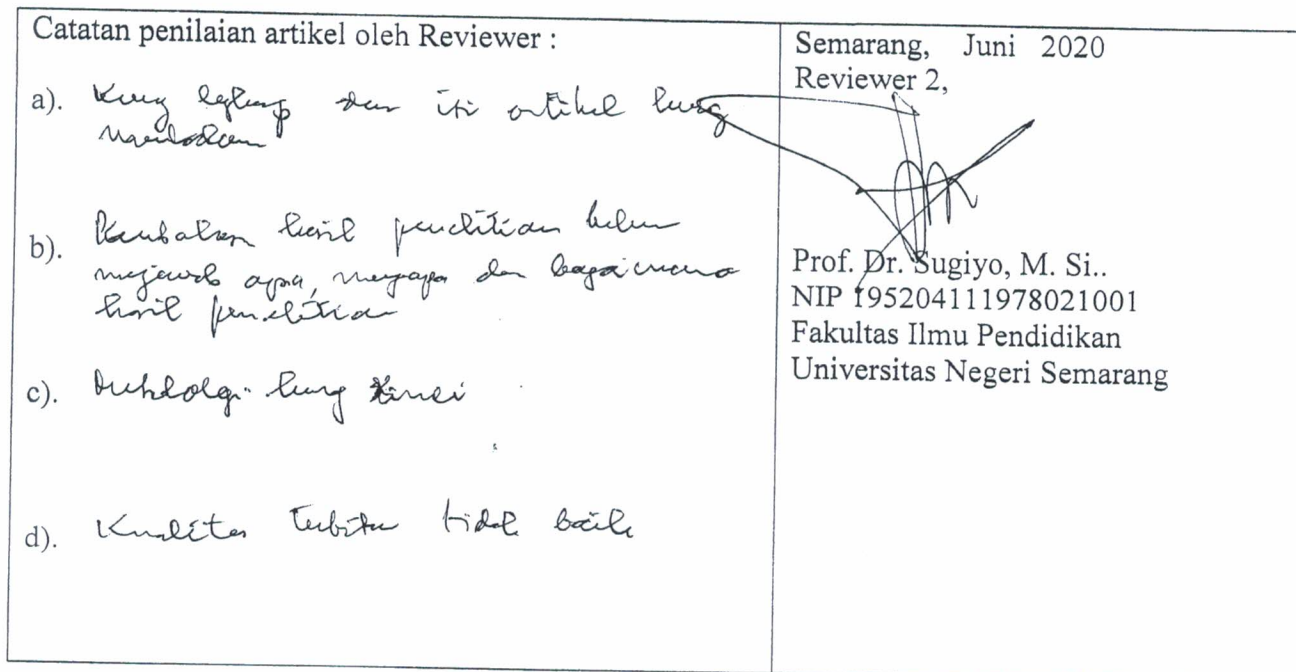 Catatan penilaian artikel oleh Reviewer :
a). Kurang lengkap dan isi artikel kurang
b). hasil penelitian belum
apa, mengapa dan bagaimana
hasil penelitian
c). kurang
d). Kualitas terbitan tidak baik
Semarang, Juni 2020
Reviewer 2,
Prof. Dr. Sugiyo, M. Si..
NIP 195204111978021001
Fakultas Ilmu Pendidikan
Universitas Negeri Semarang